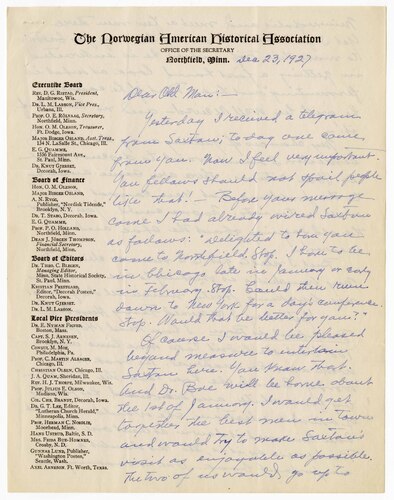 The Norwegian American Historical Association
OFFICE OF THE SECRETARY
Northfield, Minn. Dec 23, 1927
Executive Board
REV. D. G. RISTAD, President,
Manitowoc, Wis.
DR. L. M. LARSON, Vice Pres.,
Urbana, Ill.
PROF. O. E. ROLVAAG, Secretary,
Northfield, Minn.
HON. O. M. OLESON, Treasurer,
Ft. Dodge, Iowa.
MAJOR BIRGER OSLAND, Asst. Treas.
134 N. LaSalle St., Chicago, Ill.
E. G. QUAMME,
St. Paul, Minn.
DR. KNUT GJERSET,
Decorah, Iowa.
Board of Finance
HON. O. M. OLESON.
MAJOR BIRGER OSLAND.
A. N. RYGG,
Publisher, "Nordisk Tidende,"
Brooklyn, N. Y.
DR. T. STABO, Decorah, Iowa.
E. G. QUAMME.
PROF. P. O. HOLLAND,
Northfield, Minn.
DEAN J. JÖRGEN THOMPSON,
Financial Secretary,
Northfield, Minn.
Board of Editors
DR. THEO. C. BLEGEN,
Managing Editor,
Minn. State Historical Society,
St. Paul, Minn.
KRISTIAN PRESTGARD,
Editor, "Decorah Posten,"
Decorah, Iowa.
DR. KNUT GJERSET.
DR. L. M. LARSON.
Local Vice Presidents
DR. E. NYMAN FIGVED,
Boston, Mass.
CAPT. S. J. ARNESEN,
Brooklyn, N. Y.
CONSUL M. MOE,
Philadelphia, Pa.
PROF. C. MARTIN ALSAGER,
Chicago, Ill.
CHRISTIAN OLSEN, Chicago, Ill.
J. A. QUAM, Sheridan, Ill.
REV. H. J. THORPE, Milwaukee, Wis.
PROF. JULIUS E. OLSON,
Madison, Wis.
COL. CHR. BRANDT, Decorah, Iowa.
DR. G. T. LEE, Editor,
"Lutheran Church Herald,"
Minneapolis, Minn.
PROF. HERMAN C. NORDLIE,
Moorhead, Minn.
HANS USTRUD, Baltic, S. D.
MRS. FRIDA BUE-HOMNES,
Crosby, N. D.
GUNNAR LUND, Publisher,
"Washington Posten,"
Seattle, Wash.
AXEL ARNESON, Ft. Worth, Texas.
Dear Old Man:—
Yesterday I received a telegram
from Saxton, today one came
from you. Now I feel very important.
You fellows should not spoil people
like that! — Before your message
came I had already wired Saxton
as follows: "Delighted to have you
come to Northfield. Stop. I have to be
in Chicago late in January or early
in February. Stop. Could then run
down to New York for a day's conference.
Stop. Would that be better for you?"
Of course I would be pleased
beyond measure to entertain
Saxton here. You know that.
And Dr. Boe will be home about
the 1st of January. I would get
together the best men in town
and would try to make Saxton's
visit as enjoyable as possible.
The two of us would go up to